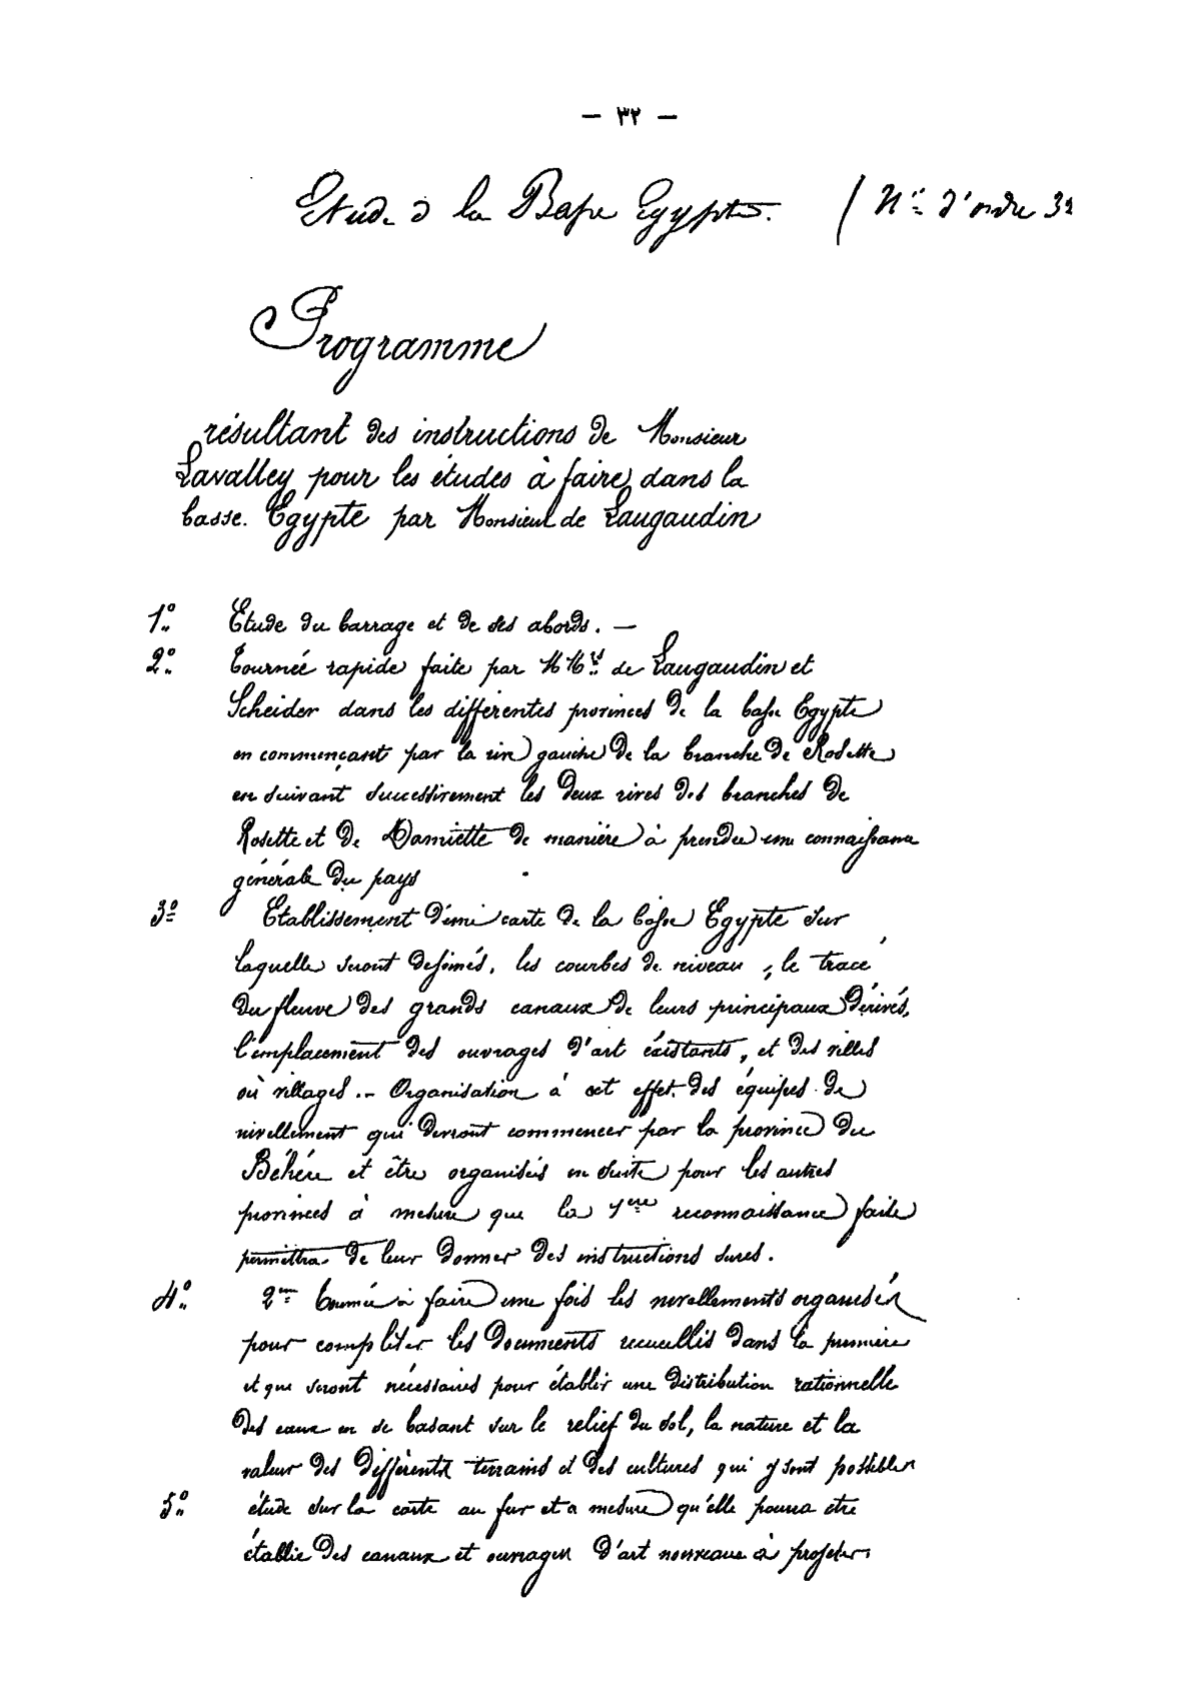 — ٣٢ —
Etude de la Basse Egypte. / N° d'ordre 32
Programme
résultant des instructions de Monsieur
Lavalley pour les études à faire dans la
basse. Egypte par Monsieur de Laugaudin
1° Etude du barrage et de ses abords. —
2° Tournée rapide faite par MM.rs de Laugaudin et
Scheider dans les différentes provinces de la basse Egypte
en commençant par la rive gauche de la branche de Rosette
en suivant successivement les deux rives des branches de
Rosette et de Damiette de manière à prendre une connaissance
générale du pays
3° Etablissement d'une carte de la basse Egypte sur
laquelle seront dessinés, les courbes de niveau, le tracé
du fleuve des grands canaux de leurs principaux dérivés,
l'emplacement des ouvrages d'art éxistants, et des villes
où villages. - Organisation à cet effet des équipes de
nivellement qui devront commencer par la province du
Béhéra et être organisés en suite pour les autres
provinces à mesure que la 1ère reconnaissance faite
permettra de leur donner des instructions sures.
4° 2me tournée à faire une fois les nivellements organisés
pour compléter les documents recueillis dans la première
et que seront nécessaires pour établir une distribution rationnelle
des eaux en se basant sur le relief du sol, la nature et la
valeur des différents terrains et des cultures qui y sont possibles
5° étude sur la carte au fur et a mesure qu'elle pourra etre
établie des canaux et ouvrages d'art nouveaux à projeter